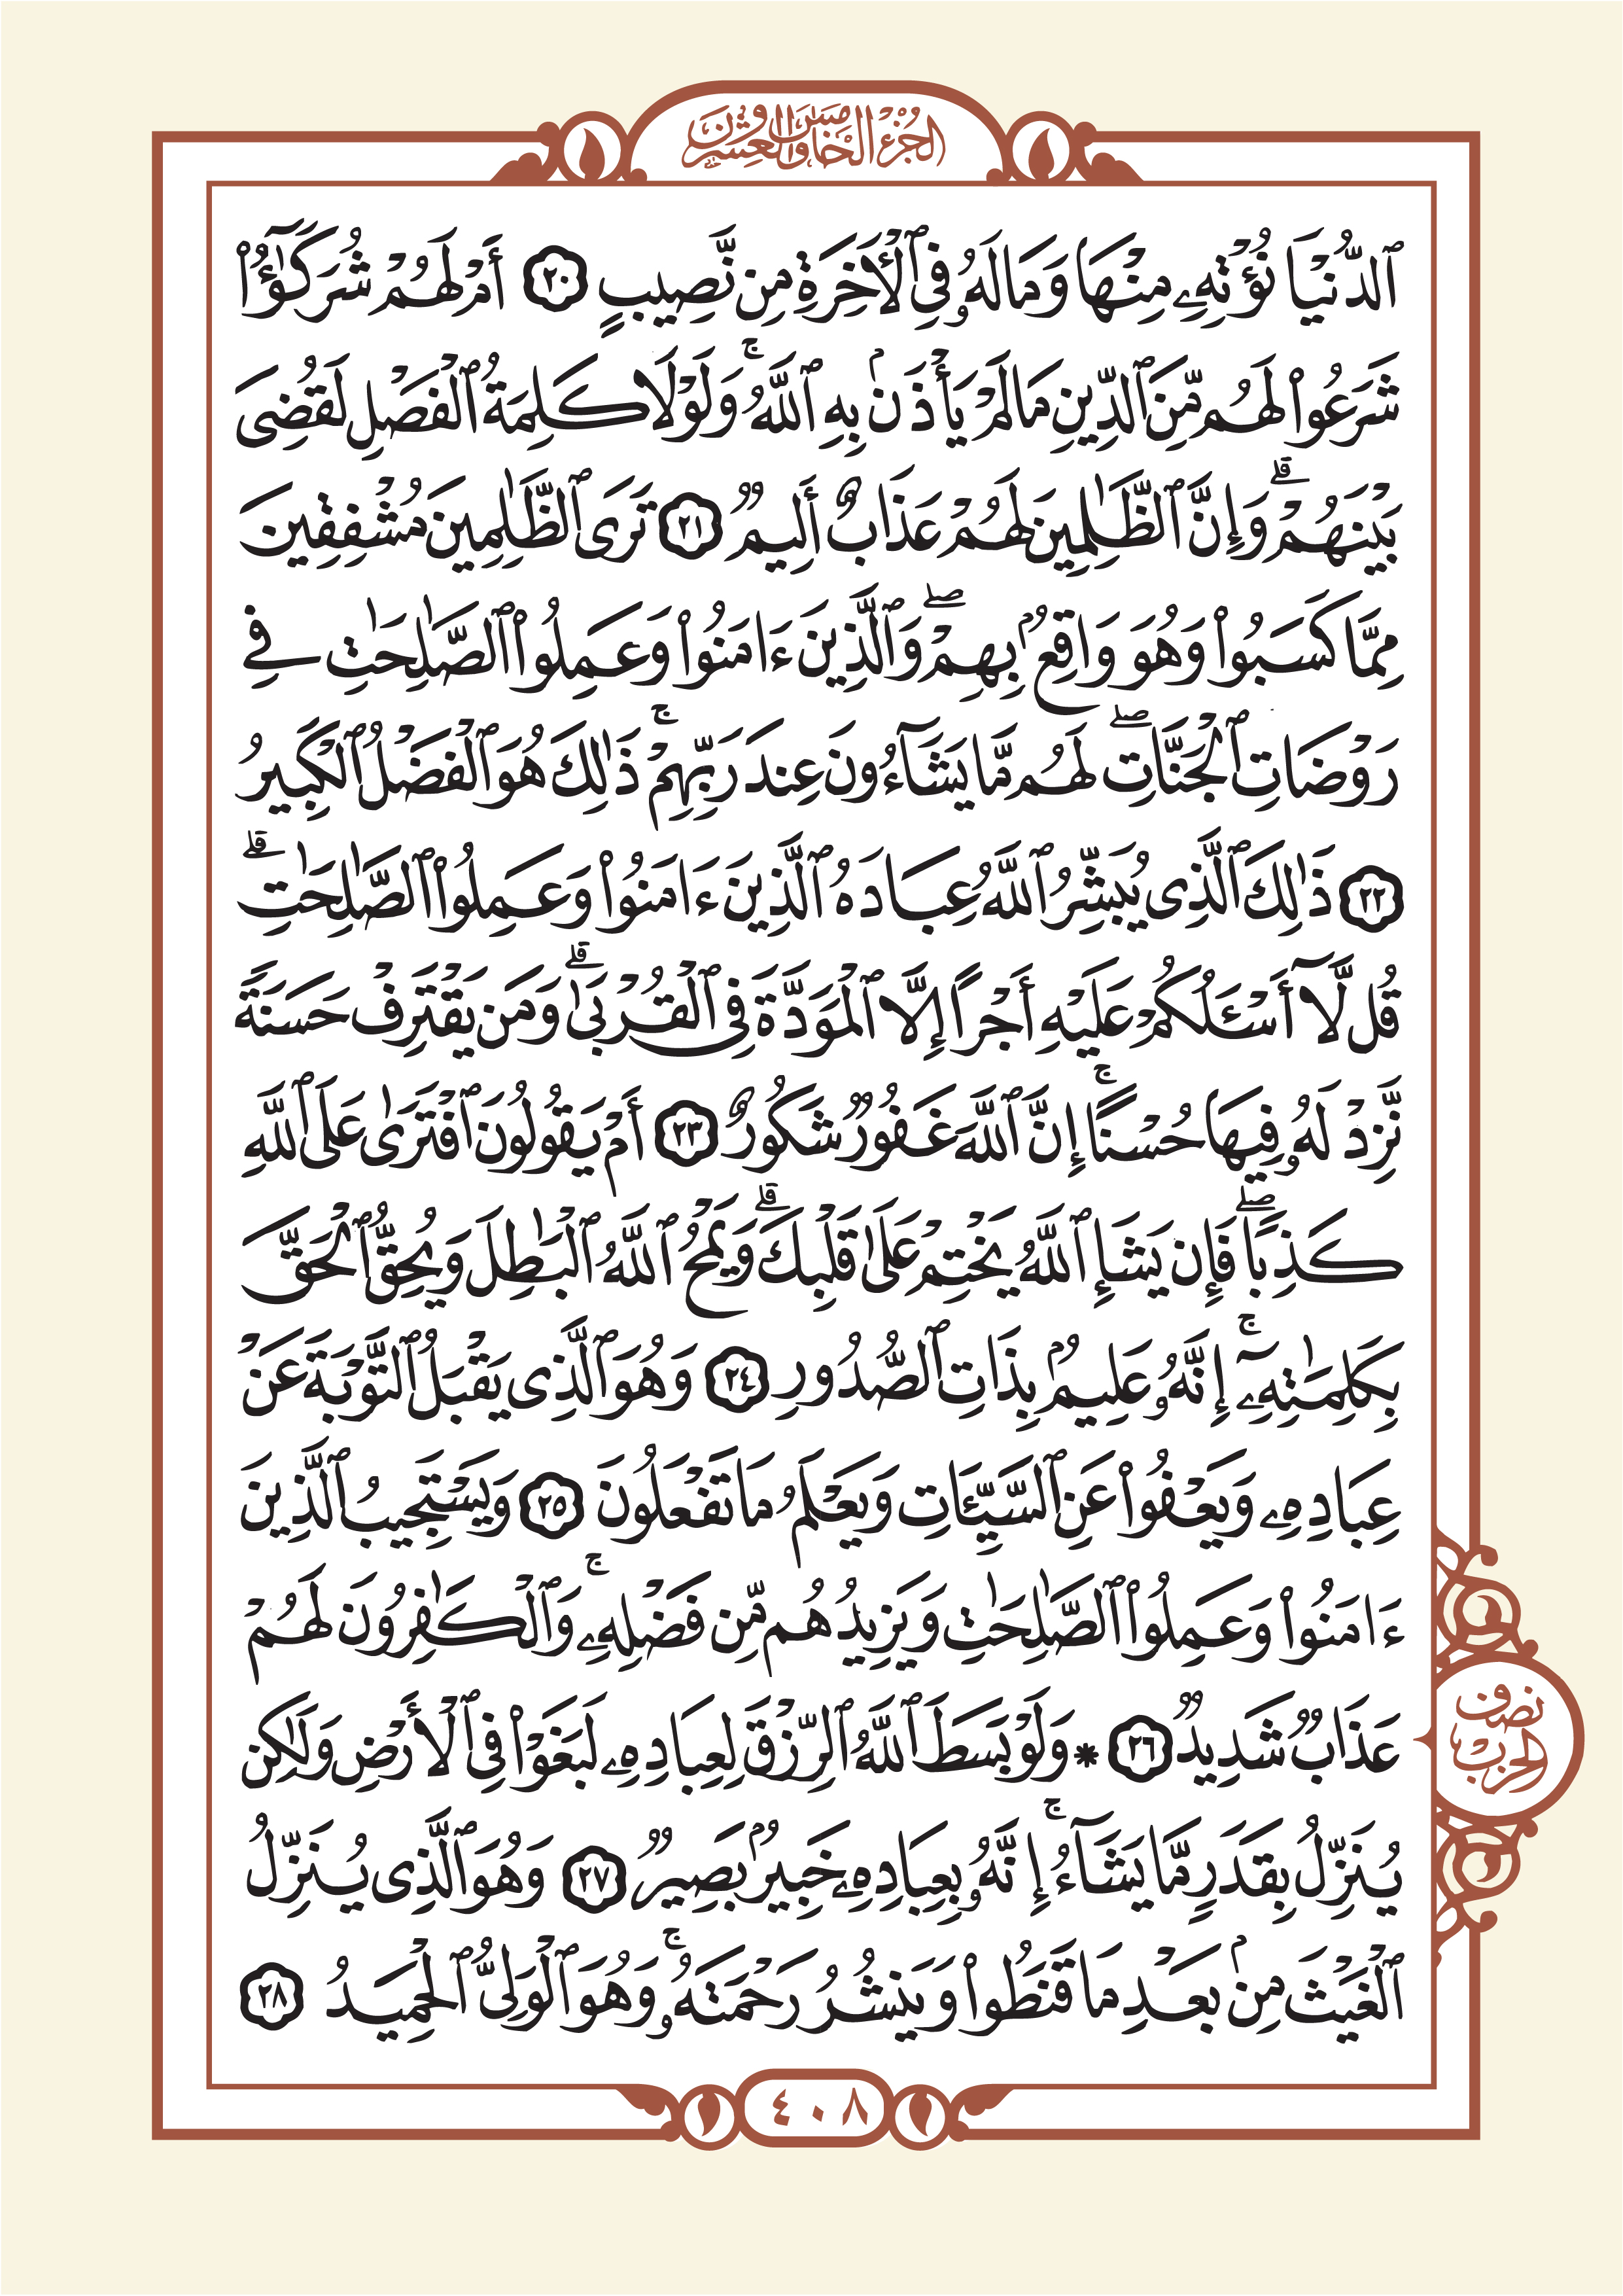 الجزء الخامس والعشرون
ٱلدُّنْيَا نُؤْتِهِۦ مِنْهَا وَمَا لَهُۥ فِى ٱلْأَخِرَةِ مِن نَّصِيبٍ ٢٠ أَمْ لَهُمْ شُرَكَٰٓؤُا۟
شَرَعُوا۟ لَهُم مِّنَ ٱلدِّينِ مَا لَمْ يَأْذَنۢ بِهِ ٱللَّهُ ۚ وَلَوْلَا كَلِمَةُ ٱلْفَصْلِ لَقُضِىَ
بَيْنَهُمْ ۗ وَإِنَّ ٱلظَّٰلِمِينَ لَهُمْ عَذَابٌ أَلِيمٌ ٢١ تَرَى ٱلظَّٰلِمِينَ مُشْفِقِينَ
مِمَّا كَسَبُوا۟ وَهُوَ وَاقِعٌۢ بِهِمْ ۖ وَٱلَّذِينَ ءَامَنُوا۟ وَعَمِلُوا۟ ٱلصَّٰلِحَٰتِ فِى
رَوْضَاتِ ٱلْجَنَّاتِ ۖ لَهُم مَّا يَشَآءُونَ عِندَ رَبِّهِمْ ۚ ذَٰلِكَ هُوَ ٱلْفَضْلُ ٱلْكَبِيرُ
٢٢ ذَٰلِكَ ٱلَّذِى يُبَشِّرُ ٱللَّهُ عِبَادَهُ ٱلَّذِينَ ءَامَنُوا۟ وَعَمِلُوا۟ ٱلصَّٰلِحَٰتِ ۗ
قُل لَّآ أَسْـَٔلُكُمْ عَلَيْهِ أَجْرًا إِلَّا ٱلْمَوَدَّةَ فِى ٱلْقُرْبَىٰ ۗ وَمَن يَقْتَرِفْ حَسَنَةً
نَّزِدْ لَهُۥ فِيهَا حُسْنًا ۚ إِنَّ ٱللَّهَ غَفُورٌ شَكُورٌ ٢٣ أَمْ يَقُولُونَ ٱفْتَرَىٰ عَلَى ٱللَّهِ
كَذِبًا ۖ فَإِن يَشَإِ ٱللَّهُ يَخْتِمْ عَلَىٰ قَلْبِكَ ۗ وَيَمْحُ ٱللَّهُ ٱلْبَٰطِلَ وَيُحِقُّ ٱلْحَقَّ
بِكَلِمَٰتِهِۦٓ ۚ إِنَّهُۥ عَلِيمٌۢ بِذَاتِ ٱلصُّدُورِ ٢٤ وَهُوَ ٱلَّذِى يَقْبَلُ ٱلتَّوْبَةَ عَنْ
عِبَادِهِۦ وَيَعْفُوا۟ عَنِ ٱلسَّيِّـَٔاتِ وَيَعْلَمُ مَا تَفْعَلُونَ ٢٥ وَيَسْتَجِيبُ ٱلَّذِينَ
ءَامَنُوا۟ وَعَمِلُوا۟ ٱلصَّٰلِحَٰتِ وَيَزِيدُهُم مِّن فَضْلِهِۦ ۚ وَٱلْكَٰفِرُونَ لَهُمْ
عَذَابٌ شَدِيدٌ ٢٦ * وَلَوْ بَسَطَ ٱللَّهُ ٱلرِّزْقَ لِعِبَادِهِۦ لَبَغَوْا۟ فِى ٱلْأَرْضِ وَلَٰكِن
نصف
الحزب
يُنَزِّلُ بِقَدَرٍ مَّا يَشَآءُ ۚ إِنَّهُۥ بِعِبَادِهِۦ خَبِيرٌۢ بَصِيرٌ ٢٧ وَهُوَ ٱلَّذِى يُنَزِّلُ
ٱلْغَيْثَ مِنۢ بَعْدِ مَا قَنَطُوا۟ وَيَنشُرُ رَحْمَتَهُۥ ۚ وَهُوَ ٱلْوَلِىُّ ٱلْحَمِيدُ ٢٨
٤٠٨